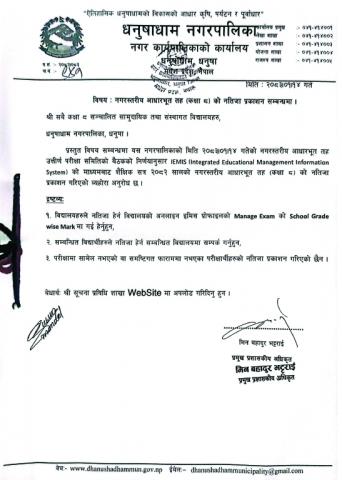 "ऐतिहासिक धनुषाधामको विकासको आधार कृषि, पर्यटन र पूर्वाधार"
धनुषाधाम नगरपालिका
नगर कार्यपालिकाको कार्यालय
धनुषाधाम, धनुषा
मधेश प्रदेश, नेपाल
विषय : नगरस्तरीय आधारभूत तह (कक्षा ८) को नतिजा प्रकाशन सम्बन्धमा ।
श्री सबै कक्षा ८ सञ्चालित सामुदायिक तथा संस्थागत विद्यालयहरु,
धनुषाधाम नगरपालिका, धनुषा ।
प्रस्तुत विषय सम्बन्धमा यस नगरपालिकाको मिति २०८३।०१।१४ गतेको नगरस्तरीय आधारभूत तह
उत्तीर्ण परीक्षा समितिको बैठकको निर्णयानुसार IEMIS (Integrated Educational Management Information
System) को माध्यमबाट शैक्षिक सत्र २०८२ सालको नगरस्तरीय आधारभूत तह (कक्षा ८) को नतिजा
प्रकाशन गरिएको व्यहोरा अनुरोध छ ।
द्रष्टव्यः
१. विद्यालयहरुले नतिजा हेर्न विद्यालयको अनलाइन इमिस प्रोफाइलको Manage Exam को School Grade
wise Mark मा गई हेर्नुहुन,
२. सम्बन्धित विद्यार्थीहरुले नतिजा हेर्न सम्बन्धित विद्यालयमा सम्पर्क गर्नुहुन,
३. परीक्षामा सामेल नभएको वा समष्टिगत फाराममा नभएका परीक्षार्थीहरुको नतिजा प्रकाशन गरिएको छैन ।
बोधार्थः श्री सूचना प्रविधि शाखा WebSite मा अपलोड गरिदिनु हुन ।
मिन बहादुर भट्टराई
प्रमुख प्रशासकीय अधिकृत
मिन बहादुर भट्टराई
प्रमुख प्रशासकीय अधिकृत
वेभ:- www.dhanushadhammun.gov.np ईमेल:- dhanushadhammunicipality@gmail.com